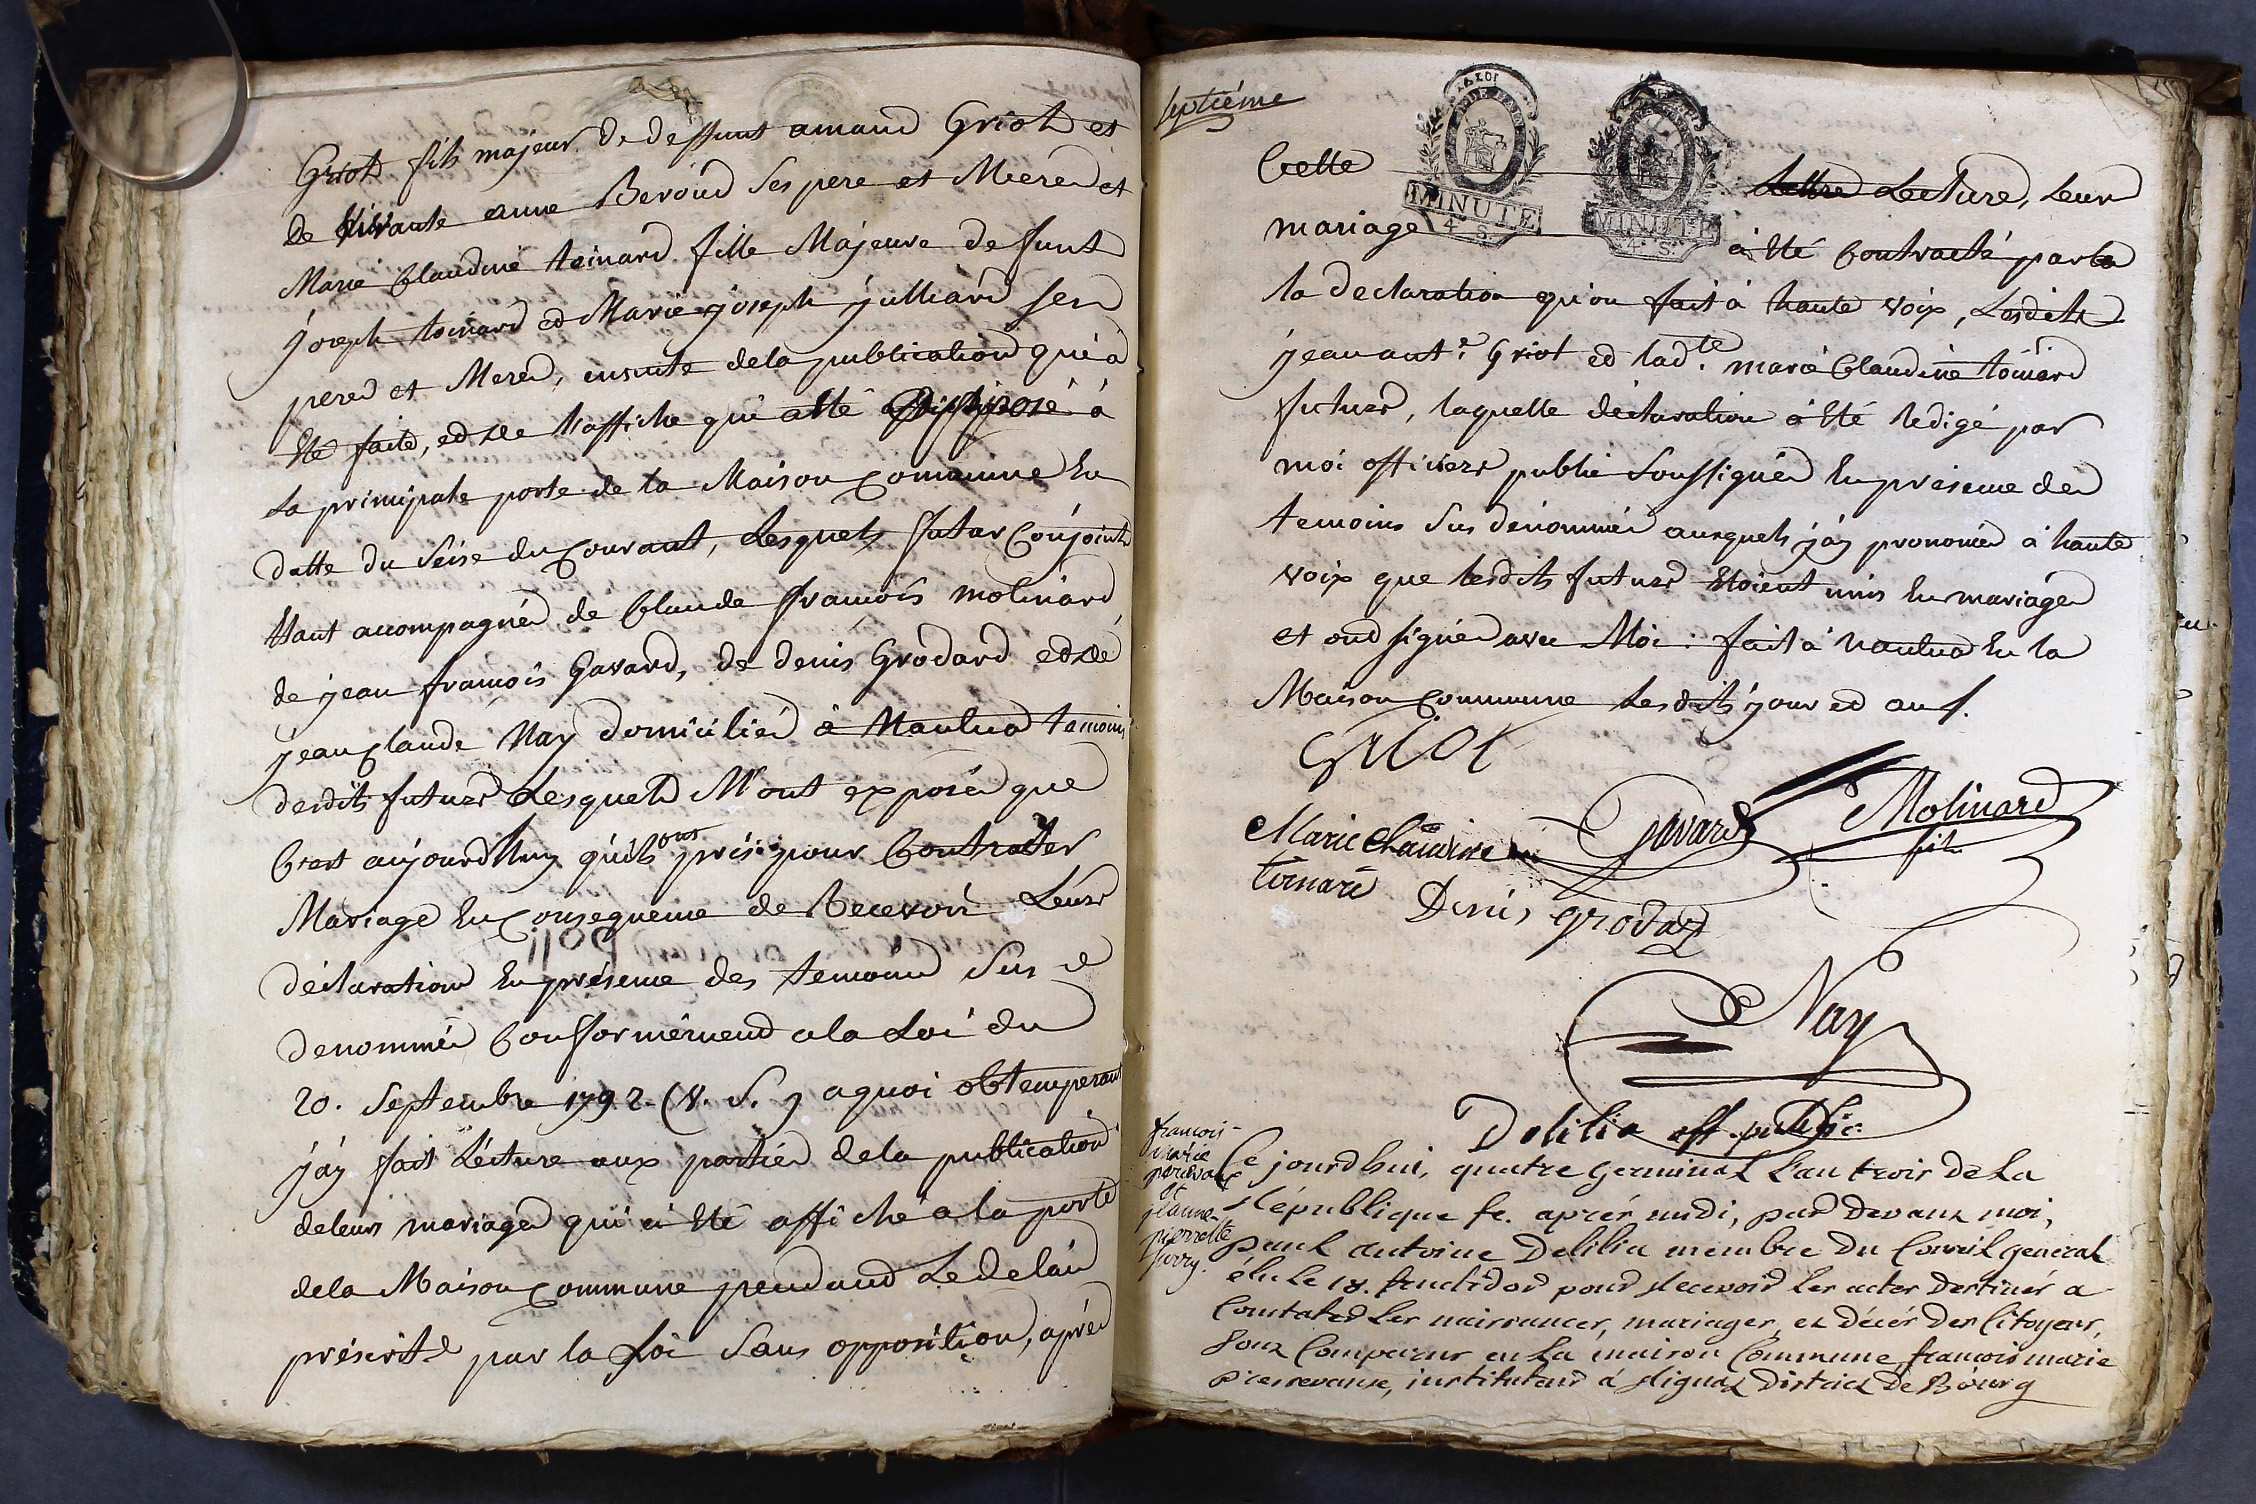 Griot fils majeur de deffunt amand Griot et
de vivante anne Beroud ses pere et Mere et
Marie Claudine toinard fille Majeure de funt
joseph toinard et Marie joseph julliard ses
pere et Mere, ensuite de la publication qui a
été faite, et de l'affiche qui a été apposé à
la principale porte de la Maison Commune En
datte du seise du Courant, Lesquels futur Conjoints
étant accompagné de Claude françois molinard
de jean françois Gavard, de denis Grodard et de
jean Claude Nay domicilié à Nantua temoins
desdits futurs Lesquels M'ont exposé que
C'est aujourdhuy qu'ils ont pris pour Contracter
Mariage En Consequence de Recevoir Leurs
déclaration En présence des temoins sus
denommé Confformément a la Loi du
20. Septembre 1792. (V. S.) a quoi obtemperant
j'ay fait Lécture aux parties de la publication
de leurs mariage qui a été affiché a la porte
de la Maison Commune pendant Le delai
préscrits par la Loi Sans opposition, après
septiéme
MINUTE
4. S.
MINUTE
4. S.
Cette Lecture, Leur
mariage à été Contracté par
la declaration qu'on fait à haute voix, Lesdits
jean ant.e Griot et lad.te marie Claudine toinard
futurs, laquelle déclaration à été redigé par
moi officiers public Soussigné En présence des
temoins sus dénommé ausquels j'ay prononcé à haute
voix que lesdits futurs étoient unis En mariage
et ont signé avec Moi : fait à nantua En la
Maison Commune Lesdits jour et an /.
GRIOt
Marie Claudine
toinard
Gavard
Molinard
fils
Denis grodard
Nay
Delilia off. public
francois-
marie
et
jeanne-
pierrette
Ce jourdhui, quatre germinal L'an trois de La
République fe. aprés midi, par Devant moi,
Paul antoine Delilia membre Du Conseil general
élu Le 18. fructidor pour Recevoir Les actes Destinés a
Constater Les naissances, mariages, et Décés Des Citoyens,
Sont Comparus en La maison Commune, francois marie
instituteur a District De Bourg